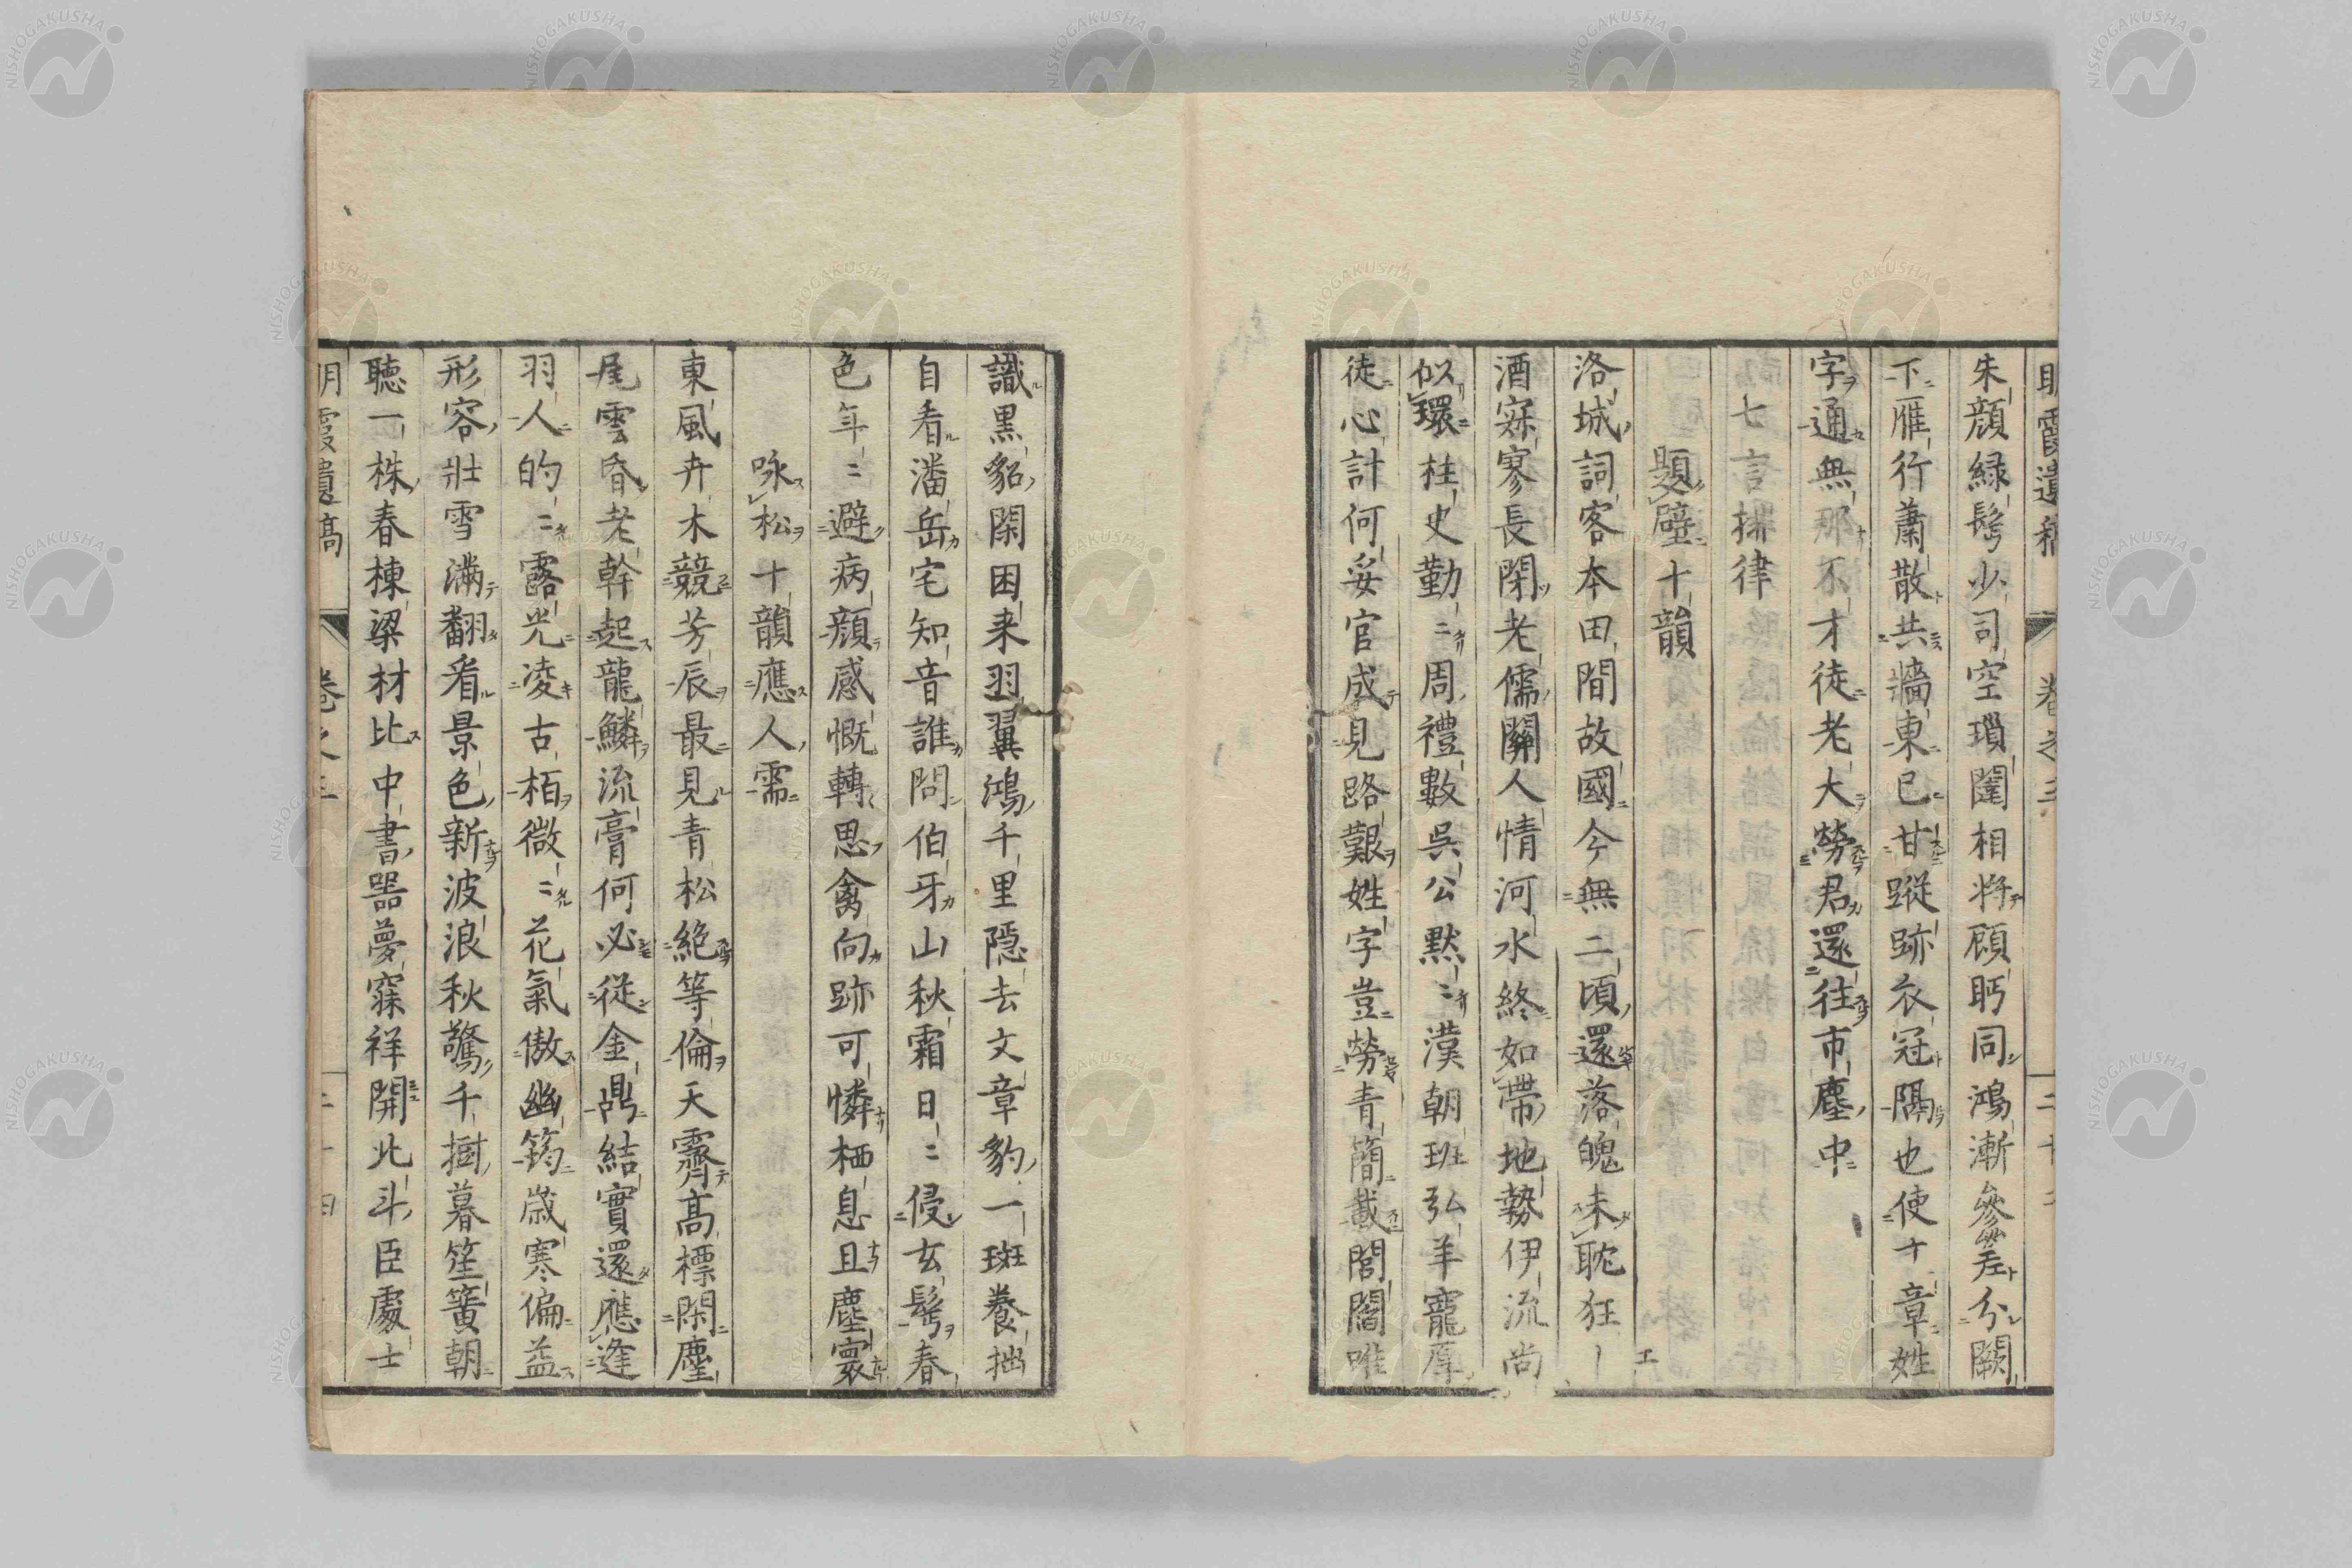 朱顔緑髩少司空瑣闥相將顧眄同鴻漸參差分闕
下雁行蕭散共牆東已甘蹤跡衣冠隔也使文章姓
字通無那不才徒老大勞君還往市塵中
七言排律
題壁十韻
洛城詞客本田間故國今無二頃還落魄未耽狂
酒寐寥長閉老儒關人情河水終如帶地勢伊流尚
似環柱史勤〻周禮數吳公默〻漢朝班弘羊寵厚
徒心計何妥官成見路艱姓字豈勞青簡載閭閻唯
識黒貂閑困来羽翼鴻千里隠去文章豹一斑養拙
自看潘岳宅知音誰問伯牙山秋霜日〻侵玄髩春
色年〻避病顔感慨轉思禽向跡可憐栖息且塵寰
咏松十韻應人需
東風卉木競芳辰最見青松絶等倫天霽高標閑塵
尾雲昏老幹起龍鱗流膏何必從金鼎結實還應逢
羽人的〻露光凌古栢微〻花氣傲幽筠歳寒偏益
形容壯雪滿翻看景色新波浪秋驚千樹暮笙簧朝
聽一株春棟梁材比中書器夢寐祥開北斗臣處士
明霞遺稿 卷之三